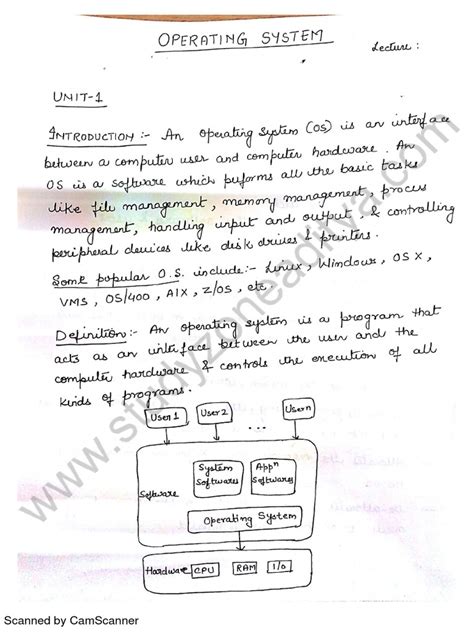 OPERATING SYSTEM
Lecture :
UNIT-1
INTRODUCTION :- An operating system (OS) is an interface
between a computer user and computer hardware. An
OS is a software which performs all the basic tasks
like file management, memory management, process
management, handling input and output, & controlling
peripheral devices like disk drives & printers.
Some popular O.S. include:- Linux, Windows, OS X,
VMS, OS/400, AIX, z/OS, etc.
Definition:- An operating system is a program that
acts as an interface between the user and the
computer hardware & controls the execution of all
kinds of programs.
User1 User2 ... Usern
System Appn
Softwares Softwares
Software
Operating System
Hardware CPU RAM I/O
www.studyzoneaditya.com
Scanned by CamScanner